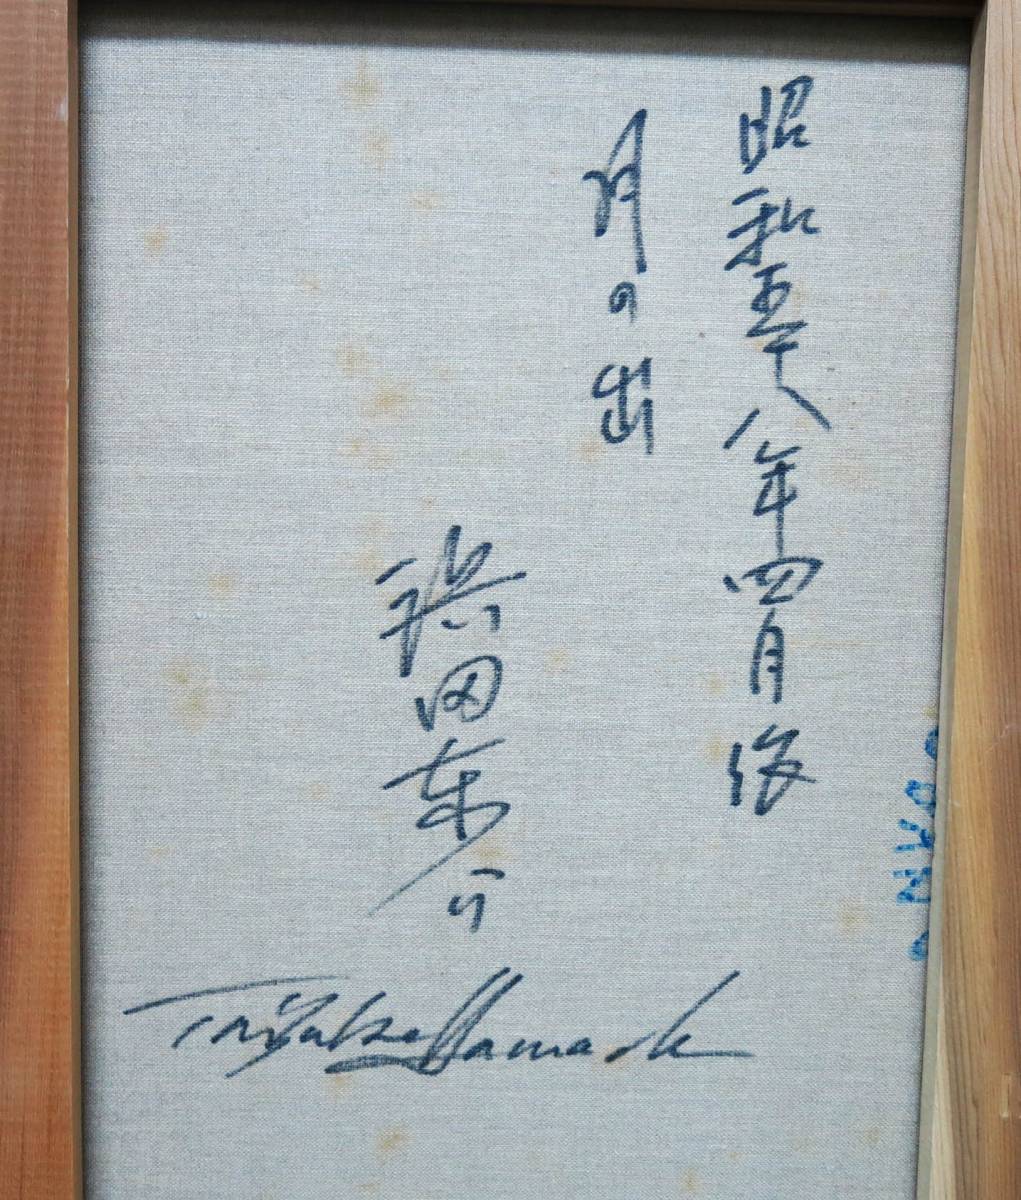 昭和五十八年四月
月の出
浜田泰介
Taisuke Hamada